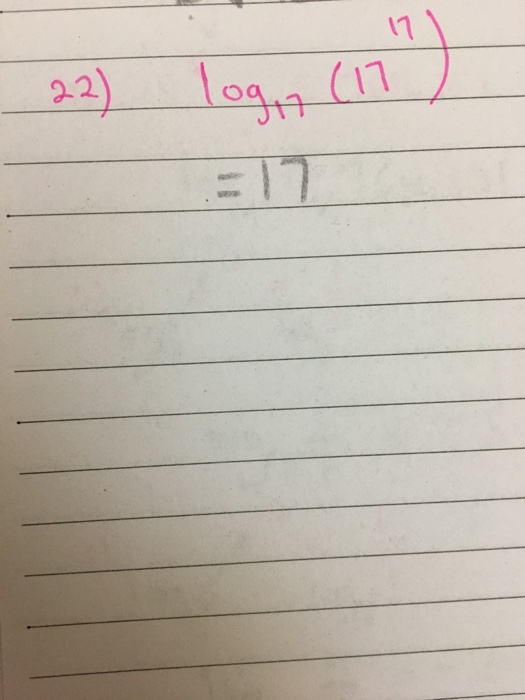 22) log₁₇ (17¹⁷)
= 17